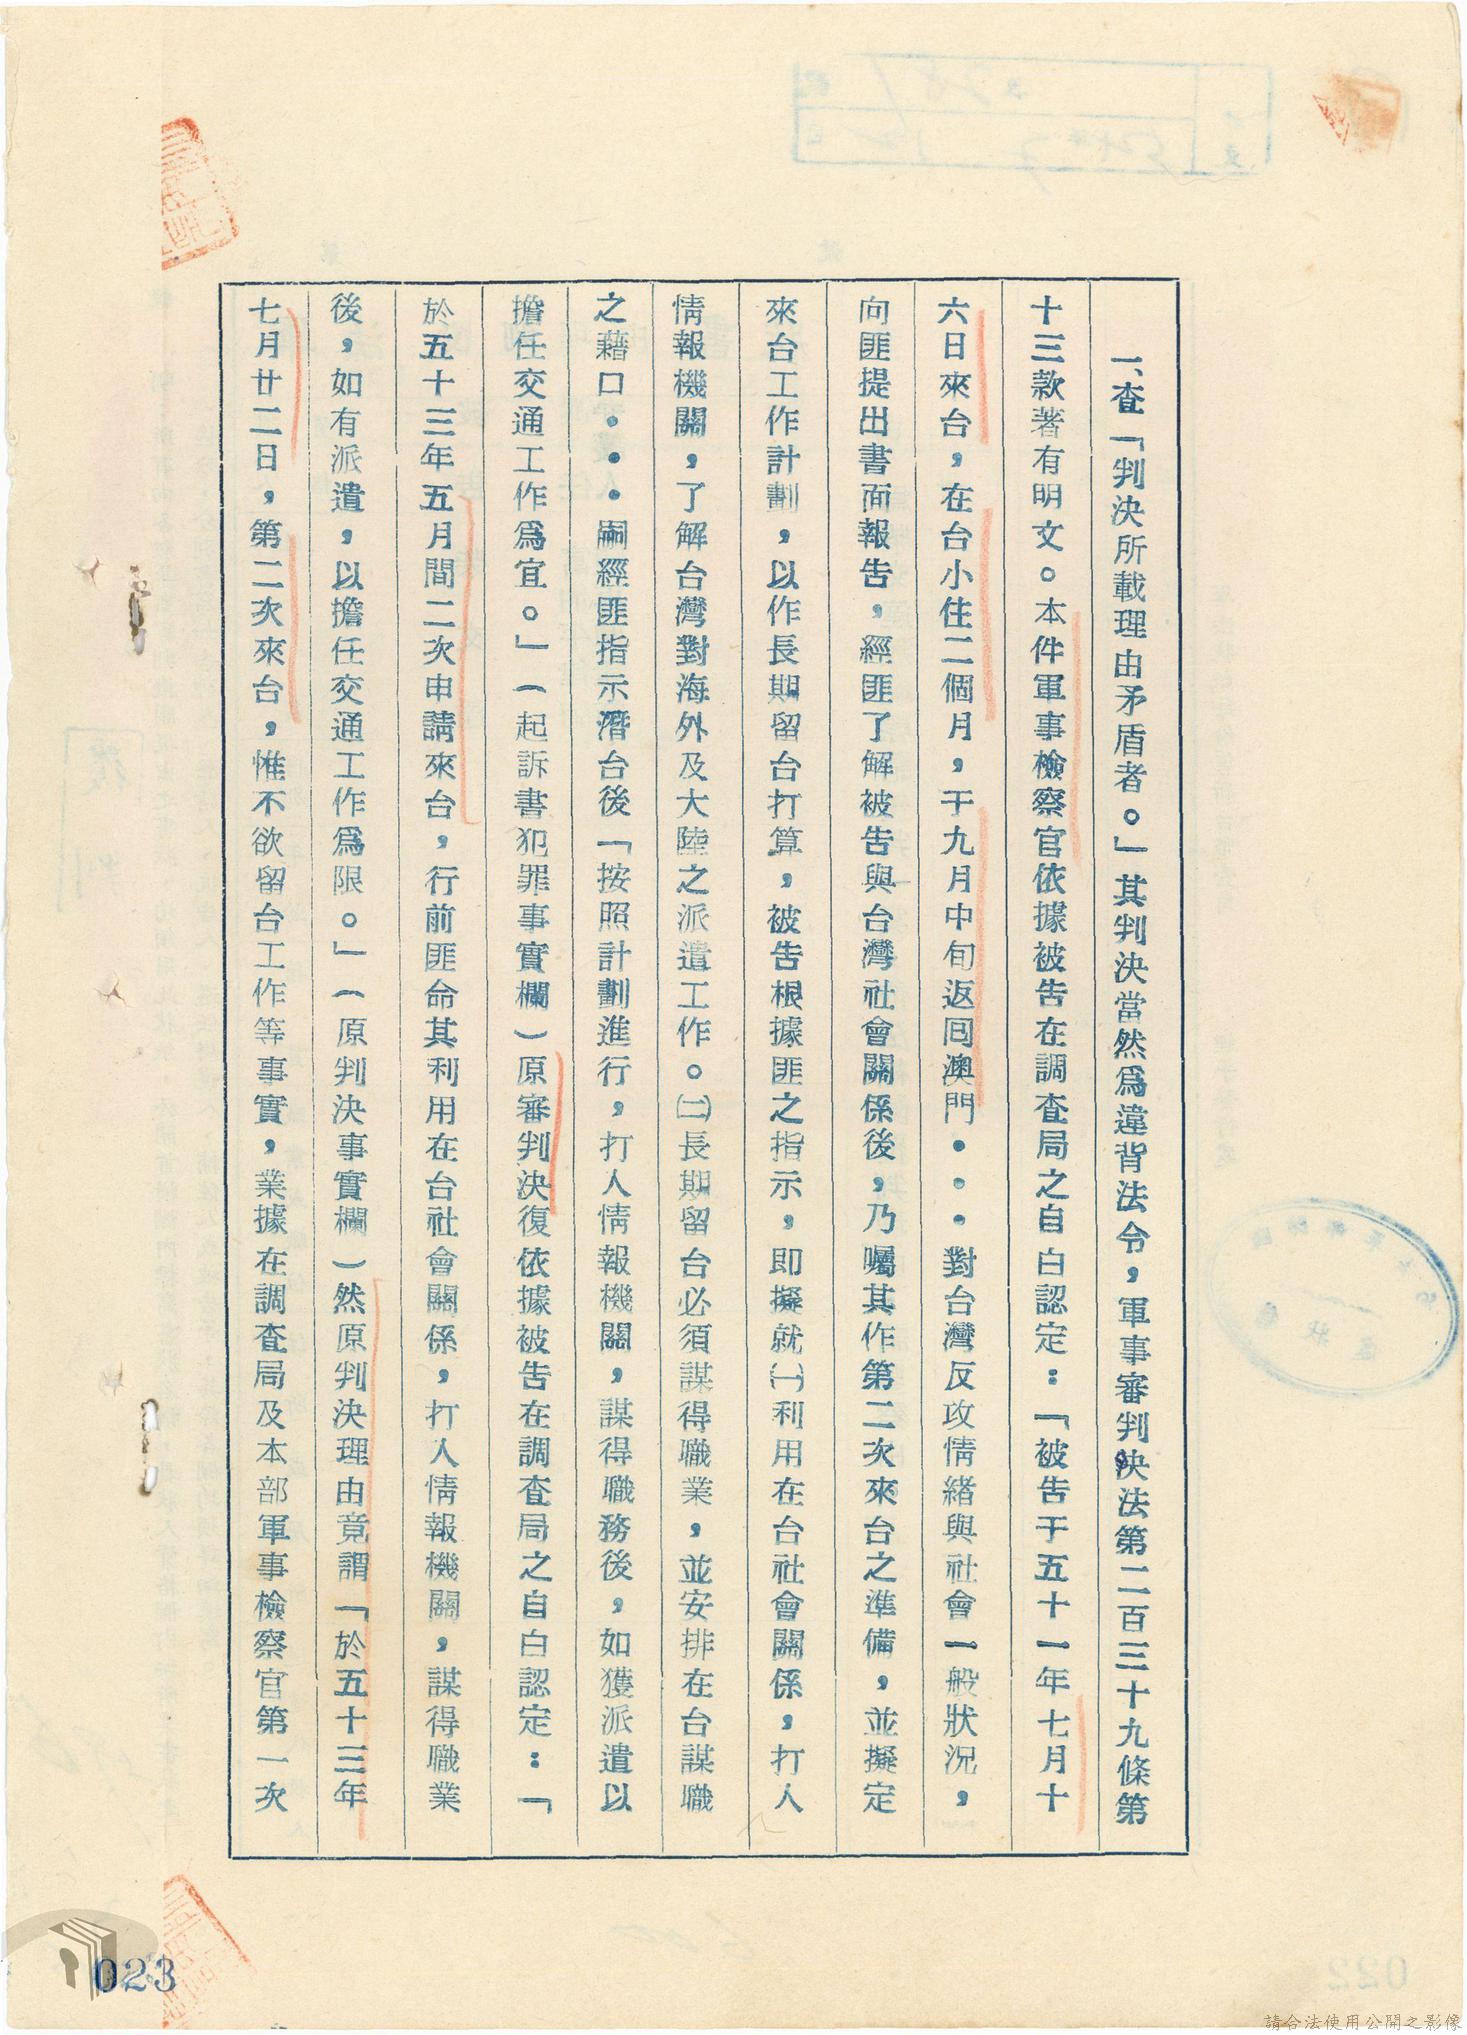 一、查「判決所載理由矛盾者。」其判決當然為違背法令，軍事審判決法第二百三十九條第
十三款著有明文。本件軍事檢察官依據被告在調查局之自白認定：「被告于五十一年七月十
六日來台，在台小住二個月，于九月中旬返回澳門・・・對台灣反攻情緒與社會一般狀況，
向匪提出書面報告，經匪了解被告與台灣社會關係後，乃囑其作第二次來台之準備，並擬定
來台工作計劃，以作長期留台打算，被告根據匪之指示，即擬就㈠利用在台社會關係，打入
情報機關，了解台灣對海外及大陸之派遣工作。㈡長期留台必須謀得職業，並安排在台謀職
之藉口・・・嗣經匪指示潛台後「按照計劃進行，打人情報機關，謀得職務後，如獲派遣以
擔任交通工作為宜。」（起訴書犯罪事實欄）原審判決復依據被告在調查局之自白認定：「
於五十三年五月間二次申請來台，行前匪命其利用在台社會關係，打入情報機關，謀得職業
後，如有派遣，以擔任交通工作為限。」（原判決事實欄）然原判決理由竟謂「於五十三年
七月廿二日，第二次來台，惟不欲留台工作等事實，業據在調查局及本部軍事檢察官第一次
023
請合法使用公開之影像